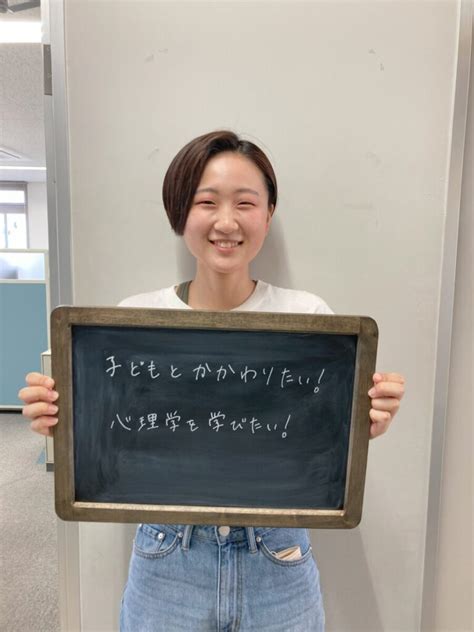 子どもとかかわりたい!
心理学を学びたい!